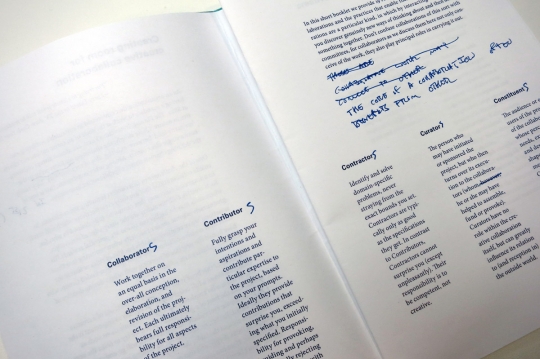 In this short booklet we provide
laborations and the practices that enable
rations are a particular kind, in which by interacting
you discover genuinely new ways of thinking about and
something together. Don't confuse collaborations of this sort with
committees, for collaborators as we discuss them have not only con-
ceive of the work, they also play principal roles in carrying it out.
THE CORE OF A COLLABORATION OFTEN
BENEFITS FROM OTHER
CollaboratorS
Work together on
an equal basis in the
over-all conception,
elaboration, and
revision of the proj-
ect. Each ultimately
bears full responsi-
bility for all aspects
of the project.
ContributorS
Fully grasp your
intentions and
aspirations and
contribute par-
ticular expertise to
the project, based
on your prompts.
Ideally they provide
contributions that
surprise you, exceed-
ing what you initially
specified. Responsi-
bility for provoking,
and perhaps
rejecting
with
ContractorS
Identify and solve
domain-specific
problems, never
straying from the
exact bounds you set.
Contractors are typi-
cally only as good
as the specifications
they get. In contrast
to Contributors,
Contractors cannot
surprise you (except
unpleasantly). Their
responsibility is to
be competent, not
creative.
CuratorS
The person who
may have initiated
or sponsored the
project, but who then
turns over its execu-
tion to the collabora-
tors (whom however
he or she may have
helped to assemble,
fund or provoke).
Curators have no
role within the cre-
ative collaboration
itself, but can greatly
influence its relation
to (and reception in)
the outside world.
ConstituentS
The audience or
users of the
of the
whose
needs,
and